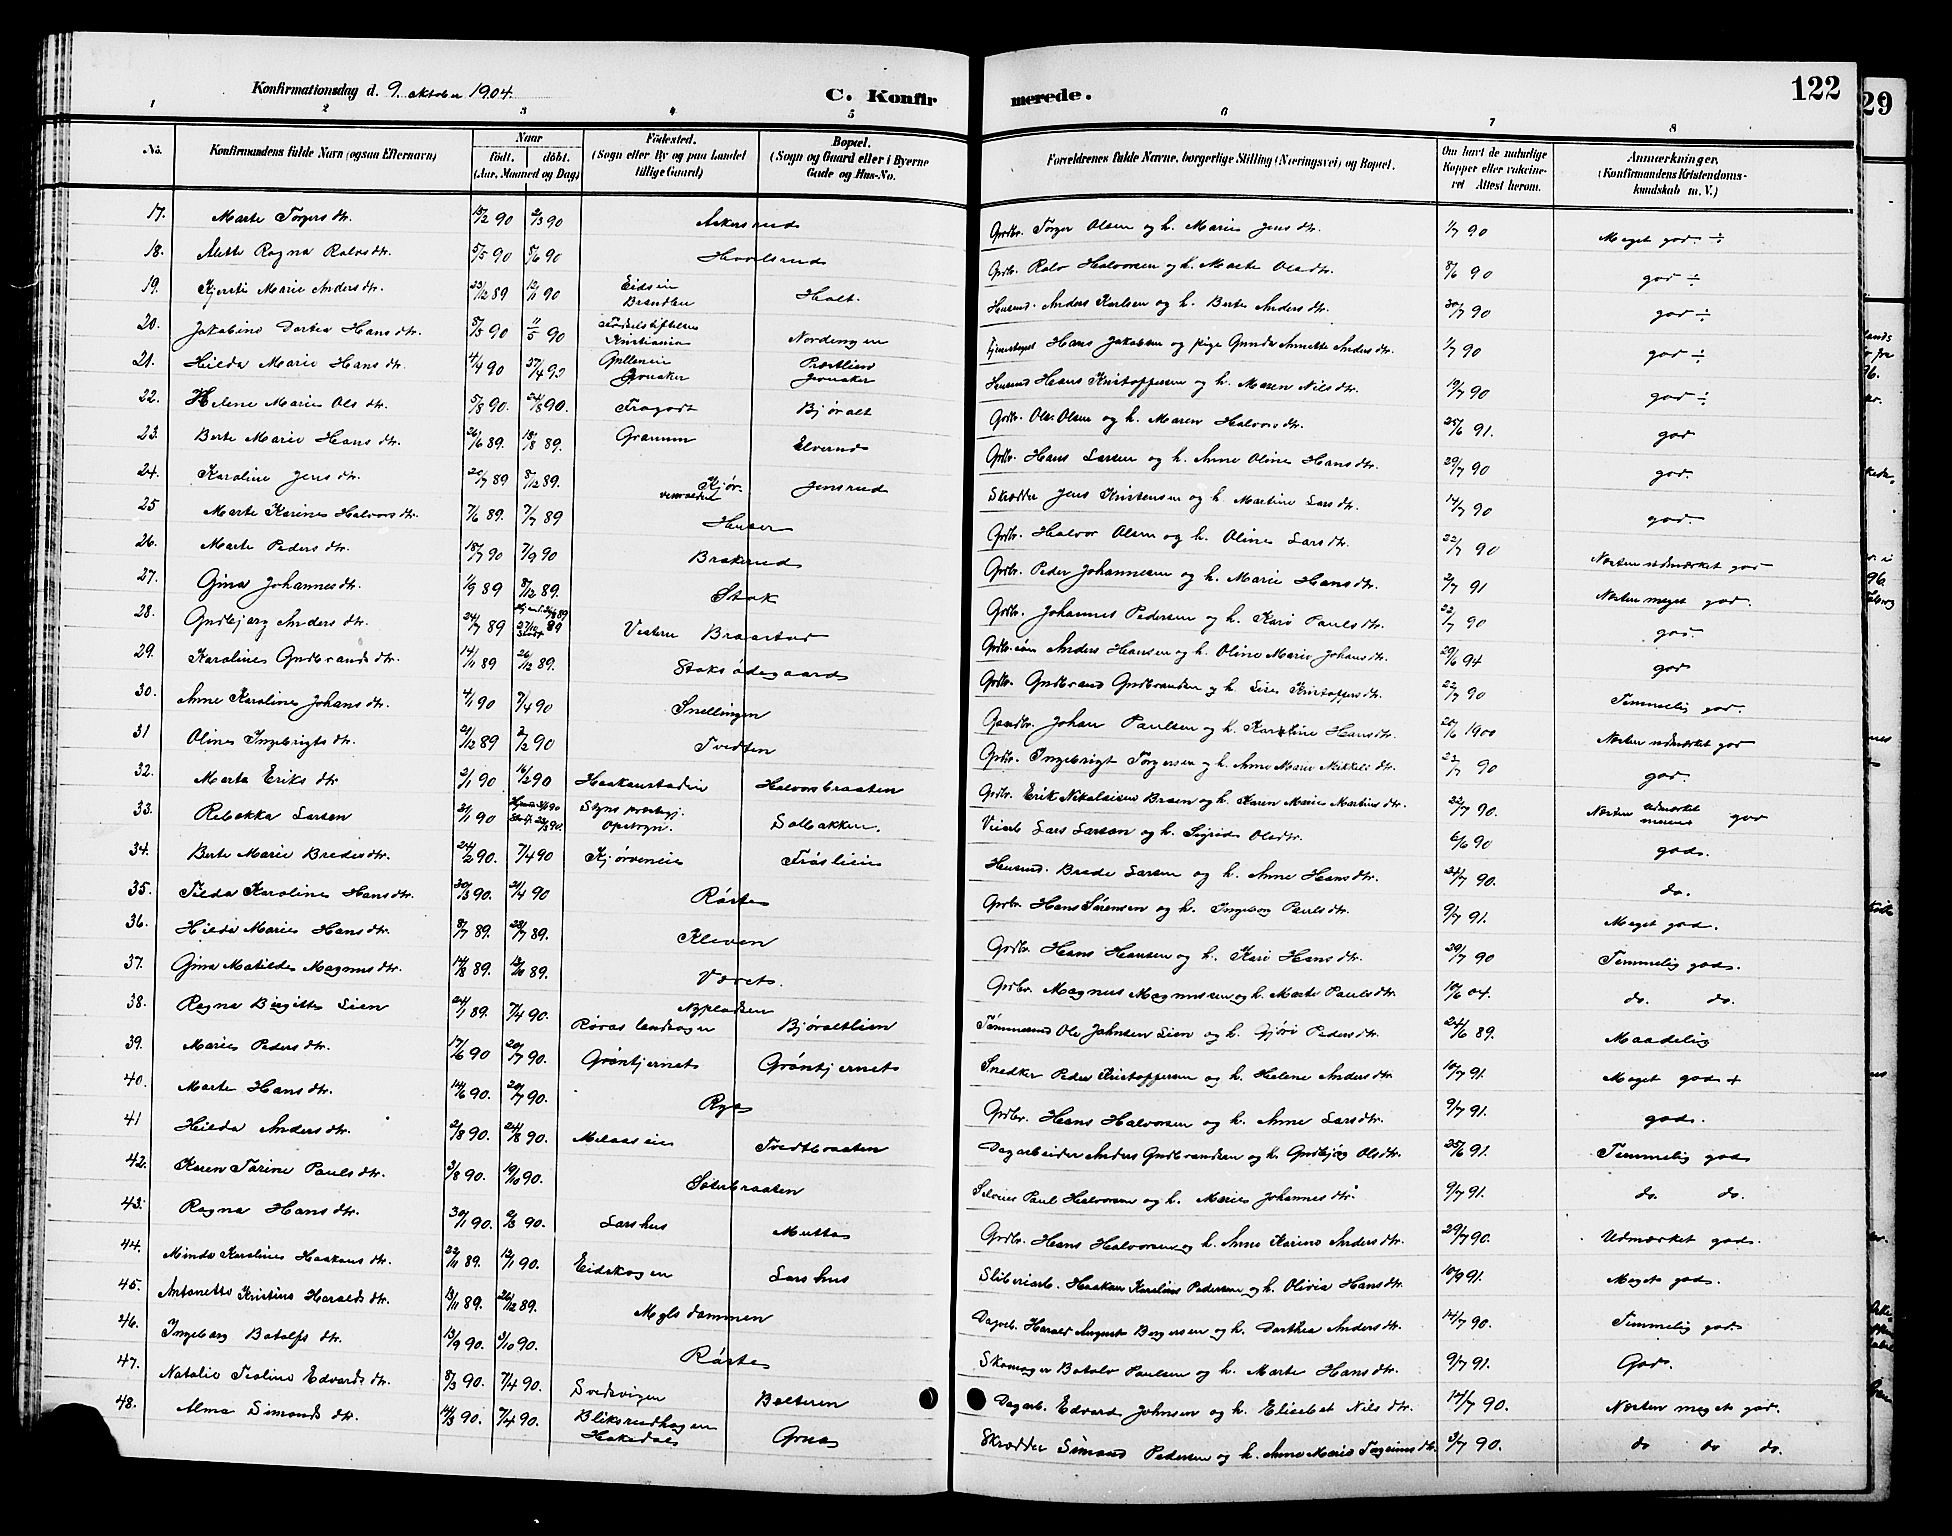 Konfirmationsdag d. 9. oktober 1904. C. Konfir merede. 122
29
1 2 3 4 5 6 7 8
No. Konfirmandens fulde Navn (ogsaa Efternavn) Naar født. døbt. (Aar, Maaned og Dag) Fødested. (Sogn eller By og paa Landet tillige Gaard) Bopæl. (Sogn og Gaard eller i Byerne Gade og Hus-No. Forældrenes fulde Navne, borgerlige Stilling (Næringsvei) og Bopæl. Om havt de naturlige Kopper eller vakcineret Attest herom. Anmærkninger. (Konfirmandens Kristendomskundskab m. V.)
17. Marte Torgersdtr. 19/2 90 2/3 90 Askersrud Grdbr. Torger Olsen og h. Marie Jensdtr. 1/7 90 Meget god ÷
18. Alette Ragna Rolvsdtr. 5/5 90 5/6 90 Hovelsrud Grdb. Rolv Halvorsen og h. Marte Olsdtr. 8/6 90 god ÷
19. Kjersti Marie Andersdtr. 23/12 89 12/1 90 Eidseie Brandbu Holt. Husmd. Anders Karlsen og h. Berte Andersdtr. 30/7 90 god ÷
20. Jakobine Dortea Hansdtr. 5/3 90 11/5 90 Fødselstiftelsen Kristiania Nordengen Tjenestegut Hans Jakobsen og pige Gunda Annette Andersdtr. 1/7 90 god ÷
21. Hilda Marie Hansdtr. 4/4 90 27/4 90 Gulleneie Jevnaker Præstlien Jevnaker Husmd Hans Kristoffersen og h. Maren Nilsdtr. 19/7 90 god ÷
22. Helene Marie Olsdtr. 5/8 90. 24/8 90. Fragodt Bjøralt Grdb. Ole Olsen og h. Maren Halvorsdtr. 25/6 91. god
23. Berte Marie Hansdtr. 26/6 89. 18/8 89. Granum Elverud Grdbr. Hans Larsen og h. Anne Oline Hansdtr. 29/7 90 god.
24. Karoline Jensdtr. 20/7 89 8/12 89. Kjør. Jensrud Skrædder Jens Kristensen og h. Martine Larsdtr. 14/7 90 god.
25 Marte Karine Halvorsdtr. 7/6 89. 7/7 89 Huser Grdbr. Halvor Olsen og h. Oline Larsdtr. 22/7 90 Næsten udmærket god
26. Marte Pedersdtr. 18/7 90 7/9 90 Brakerud Grdbr. Peder Johannesen og h. Marie Hansdtr. 2/7 91 Næsten meget god.
27. Gina Johannesdtr. 1/9 89 8/12 89. Stok Grdbr. Johannes Pedersen og h. Kari Paulsdtr. 22/7 90 god.
28. Gudbjørg Andersdtr. 24/7 89 27/10 89 Vestern Braastad Grdbr.søn Anders Hansen og h. Oline Marie Johansdtr. 29/6 94 god
29. Karoline Gudbrandsdtr. 14/11 89 26/12 89. Stoksødegaard Grdbr. Gudbrand Gudbrandsen og h. Lise Kristoffersdtr. 22/7 90 Temmelig god.
30. Anne Karoline Johansdtr. 4/1 90 7/4 90 Snellingen Gaardbr. Johan Paulsen og h. Karoline Hansdtr. 20/6 1900 Næsten udmærket god
31 Oline Ingebrigtsdtr. 21/12 89 2/2 90 Tvedten Grdbr. Ingebrigt Torgersen og h. Anne Marie Mikkelsdtr. 23/7 90 god.
32. Marta Eriksdtr 2/1 90 16/2 90 Haakenstadeie Halvorsbraaten Grdbr. Erik Nikolaisen Braen og h. Karen Marie Martinsdtr. 22/7 90. Næsten udmærket god
33. Rebekka Larsen 21/1 90 Stryns præstegj. Opstryn. Solbakken. Veiarb Lars Larsen og h. Sigrid Olsdtr. 6/6 90 god.
34. Berte Marie Bredesdtr. 24/2 90. 7/4 90 Kjørveneie Frøslieie Husmd. Brede Larsen og h. Anne Hansdtr. 24/7 90. do.
35. Tilda Karoline Hansdtr. 30/3 90. 21/4 90 Røste Grdbr. Hans Sørensen og h. Ingeborg Paulsdtr. 9/7 91. Meget god.
36. Hilda Marie Hansdtr. 8/7 89. 28/7 89. Kleven Grdbr. Hans Hansen og h. Kari Hansdtr. 29/7 90 Temmelig god.
37. Gina Matilde Magnusdtr. 14/8 89. 13/10 89. Været. Grdbr. Magnus Magnussen og h. Marte Paulsdtr. 10/6 04. do. do.
38. Ragna Birgitte Lien 24/1 89. 7/4 90. Nypladsen Røraas landsogn Bjøraltlien Tømmermd Ole Johnsen Lien og h. Gjøri Pedersdtr. 24/6 89. Maadelig
39. Marie Pedersdtr. 17/6 90 20/7 90. Grøntjernet Grøntjernet Snedker Peder Kristoffersen og h. Helene Andersdtr 10/7 91. Meget god +
40. Marte Hansdtr. 14/6 90. 20/7 90. Rye Grdbr. Hans Halvorsen og h. Anne Larsdtr. 9/7 91. god.
41 Hilda Andersdtr. 2/8 90. 24/8 90. Melaaseie Tvedtbraaten Dagarbeider Anders Gudbrandsen og h. Gudbjørg Olsdtr. 25/6 91. Temmelig god
42. Karen Tarine Paulsdtr. 3/8 90. 19/10 90. Søterbraaten Selveier Paul Halvorsen og h. Marie Johannesdtr. 9/7 91. do. do.
43. Ragna Hansdtr. 30/1 90. 2/3 90. Larshus Mutta Grdbr. Hans Halvorsen og h. Anne Karine Andersdtr. 29/7 90. Udmærket god.
44. Minda Karoline Haakensdtr. 22/11 89. 12/1 90. Eidskogen Larshus Sliberiarb. Haaken Karolius Pedersen og h. Olivia Hansdtr. 10/9 91. Meget god.
45. Antonette Kristine Haraldsdtr. 13/11 89. 26/12 89. Myls dammen Dagarb. Harald August Borgersen og h. Dorthea Andersdtr. 14/7 90. Temmelig god.
46. Ingeborg Botolfsdtr. 13/9 90. 5/10 90. Røste Skomager Botolv Paulsen og h. Marte Hansdtr. 9/7 91. God.
47. Natalie Teoline Edvardsdtr. 8/3 90. 7/4 90. Svedsvigen Bolteren Dagarb. Edvard Johnsen og h. Elisebet Nilsdtr. 14/7 90. Næsten meget god.
48. Alma Simensdtr. 14/3 90. 7/4 90. Bliksrudhagen Hakedal Grua Skrædder Simen Pedersen og h. Anne Marie Torgeirsdtr. 3/7 90. do do do.